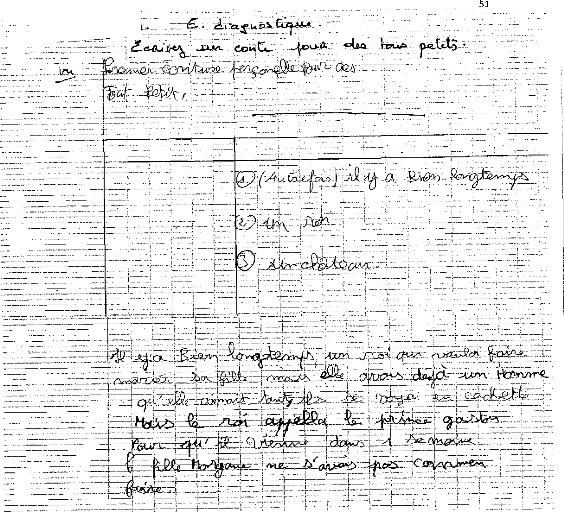 51
E. diagnostique
Écrivez un conte pour des tous petits.
vu Premier écriture personelle pour des
Tout Petit.
① (Autrefois) il y a bien longtemps
② un roi
③ un château
Il y a Bien longdtemps, un roi qui voulai faire
marier sa fille mais elle avais dejà un Homme
qu'elle aimait se voyé en cachette
Mais le roi appella le prince gaston
Pour qu'il vienne dans 1 semaine
fille Morgane ne s'avais pas commen
faire.